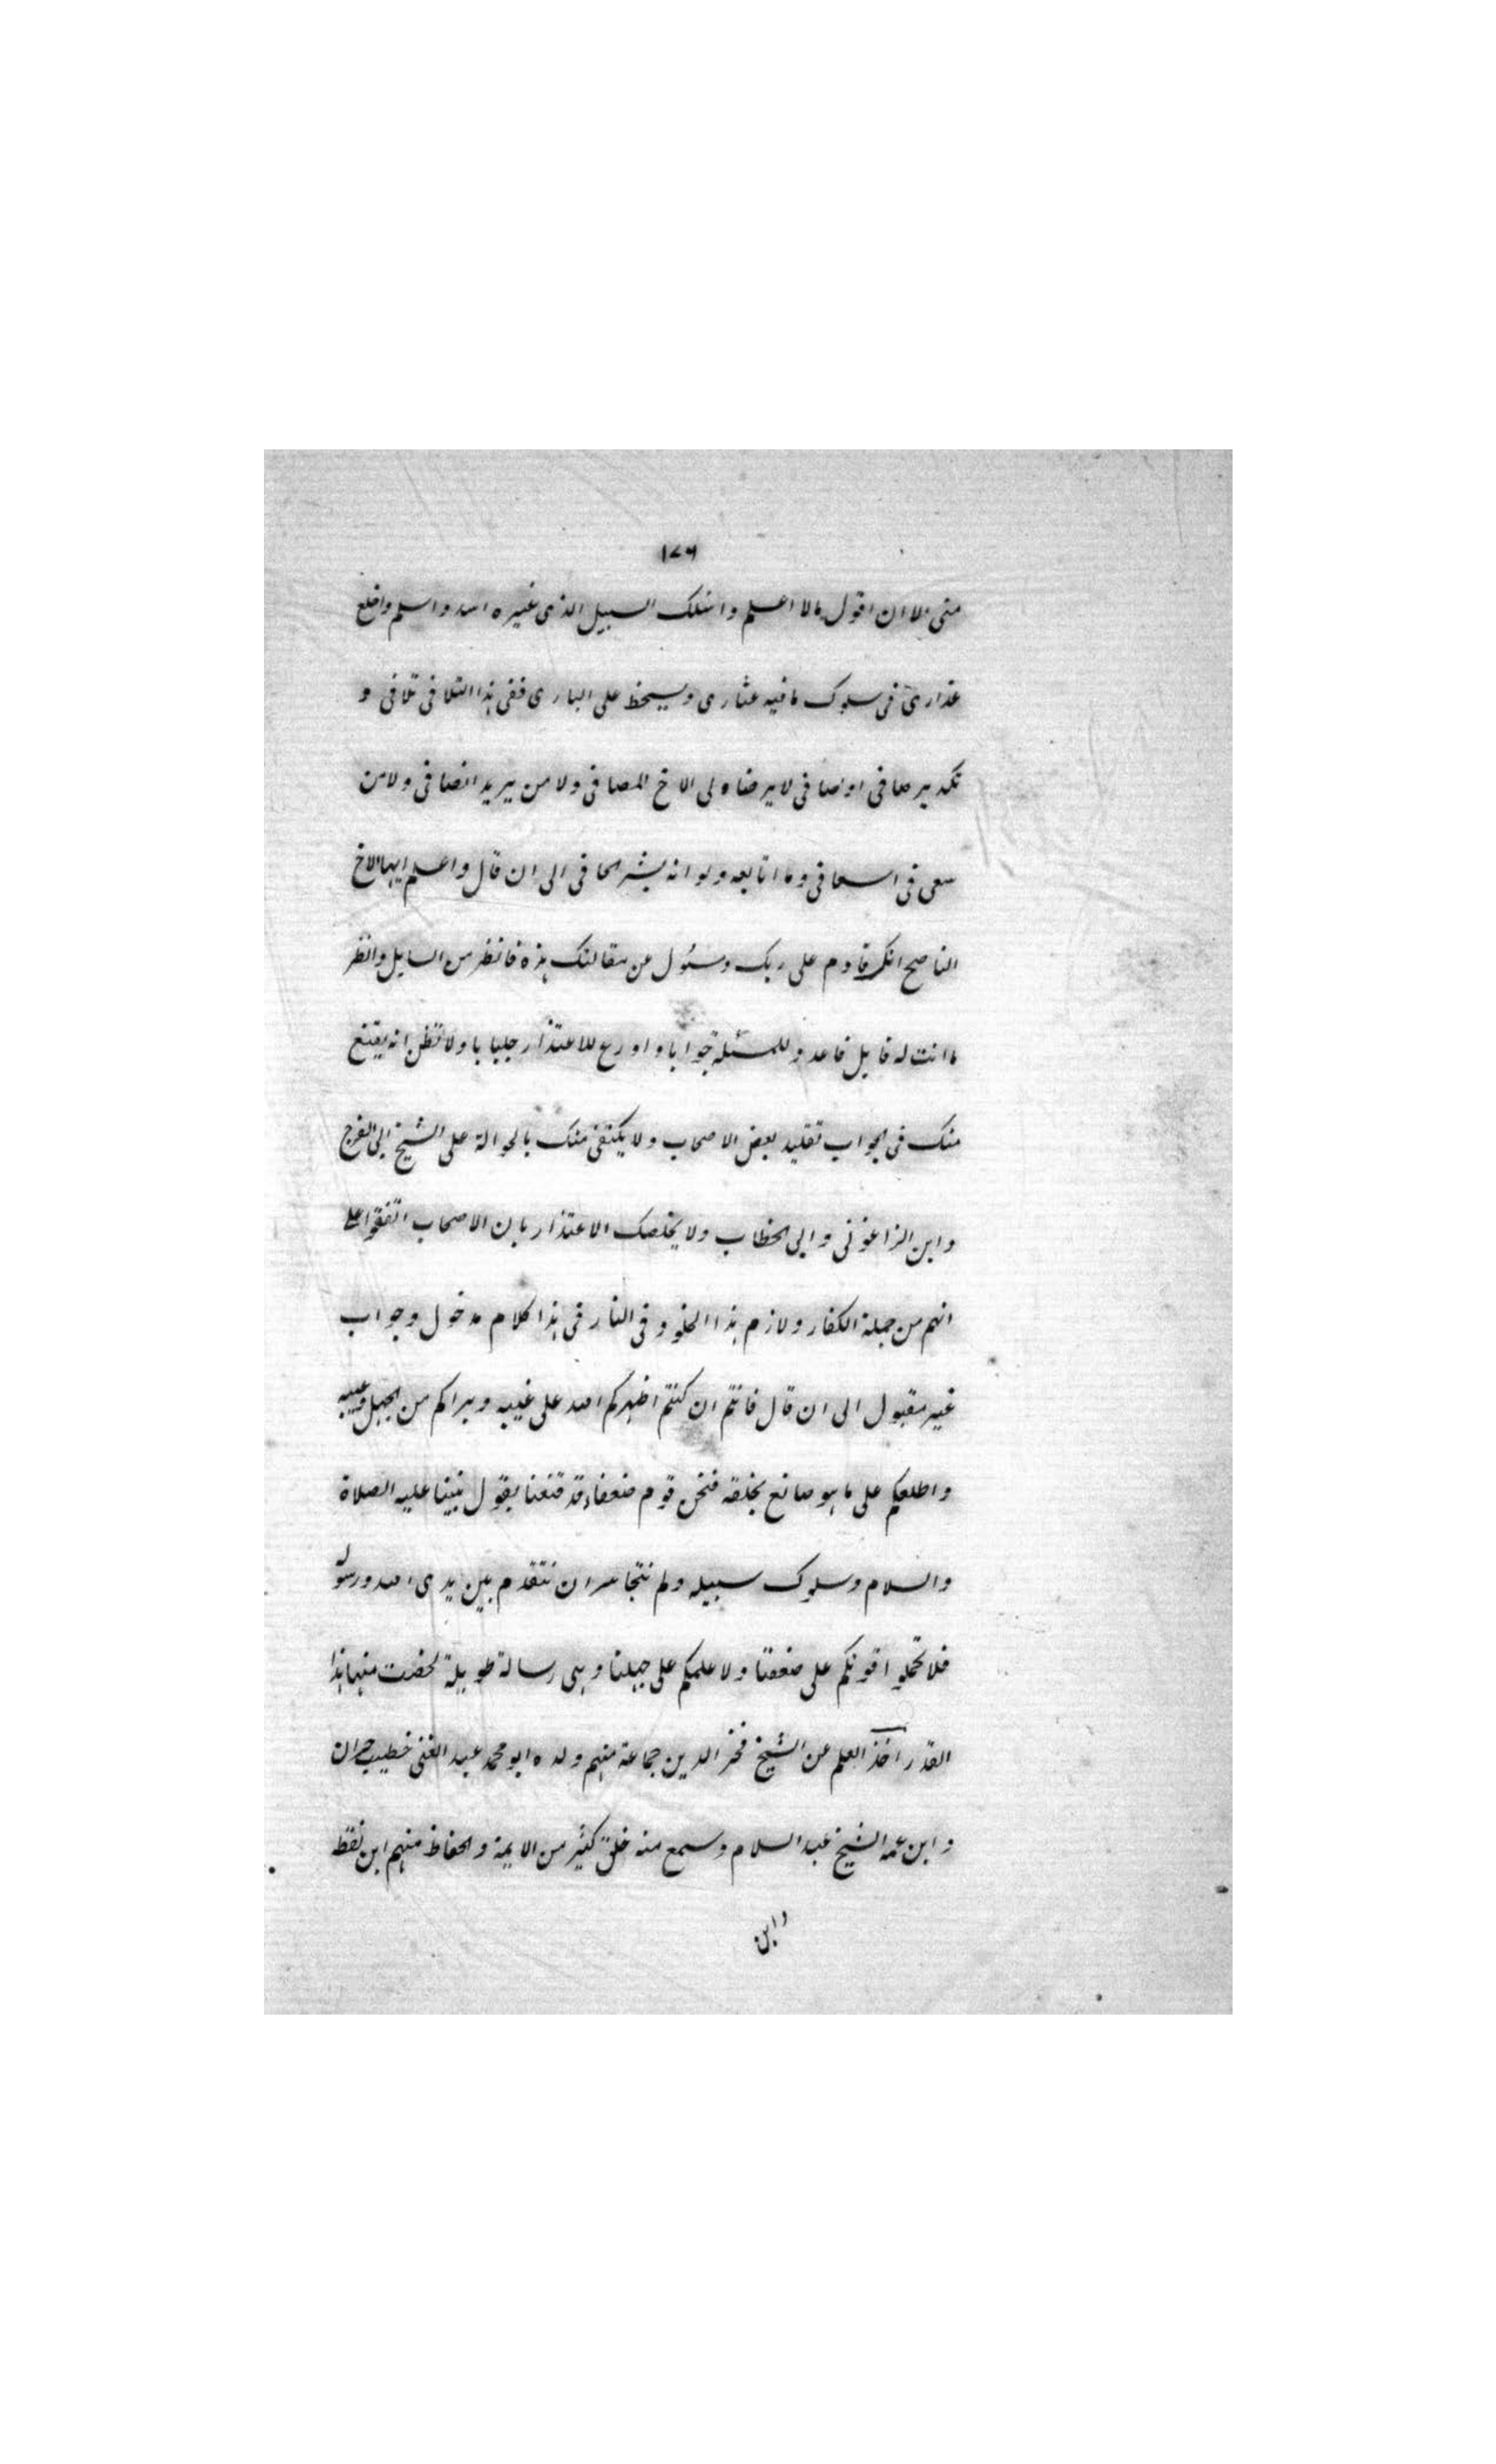 ١٧٦
منى الا ان اقول مالا اعلم واسلك السبيل الذى غيره اسد واسلم واخلع
عذارى فى سلوك ما فيه عثارى ويسخط على البارى ففى هذا التلافى تلافى و
تكدير صافى اوصافى لا يرضاه لى الاخ المصافى ولا من يريد انصافى ولا من
سعى فى اسعافى وما اتابعه ولو انه بشر الحافى الى ان قال واعلم ايها الاخ
الناصح انك قادم على ربك ومسئول عن مقالتك هذه فانظر من السايل وانظر
ما انت له قايل فاعد وللمسئلة جوابا وادرع للاعتذار جلبابا ولا تظن انه يقنع
منك فى الجواب تقليد بعض الاصحاب ولا يكتفى منك بالحوالة على الشيخ ابى الفرج
وابن الزاغونى وابى الخطاب ولا يخلصك الاعتذار بان الاصحاب اتفقوا على
انهم من جملة الكفار ولازم هذا الخلود فى النار فى هذا كلام مدخول وجواب
غير مقبول الى ان قال فانتم ان كنتم اظهركم الله على غيبه وبراكم من الجهل وعيبه
واطلعكم على ما هو صانع بخلقه فنحن قوم ضعفاء قد قنعنا بقول نبينا عليه الصلاة
والسلام وسلوك سبيله ولم نتجاسر ان نتقدم بين يدى الله ورسوله
فلا تحملوا قوتكم على ضعفنا ولا علمكم على جهلنا وهى رسالة طويلة لخصت منها هذا
القدر اخذ العلم عن الشيخ فخر الدين جماعة منهم ولده ابو محمد عبد الغنى خطيب حران
وابن عمه الشيخ عبد السلام وسمع منه خلق كثير من الايمة والحفاظ منهم ابن نقطة
وابن